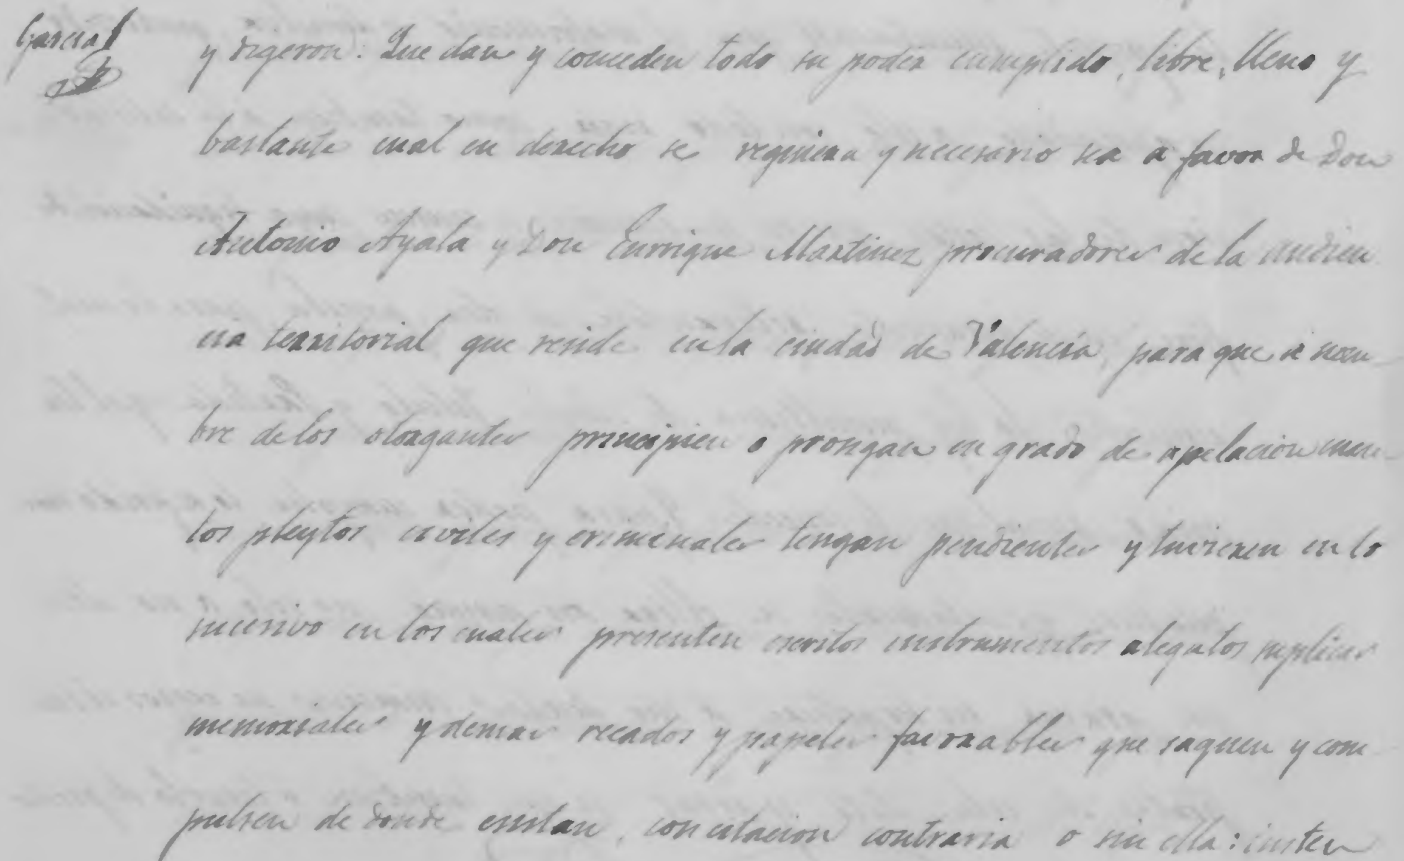 Garcia
y digeron: Que dan y conceden todo su poder cumplido, libre, lleno y
bastante cual en derecho se requiera y necesario sea a favor de Don
Antonio Ayala y Don Enrrique Martinez procuradores de la audien
cia territorial que reside en la ciudad de Valencia, para que a nom
bre de los otorgantes principien o prongan en grado de apelacion cuan
tos pleytos civiles y criminales tengan pendientes y tuvieren en lo
sucesivo en los cuales presenten escritos instrumentos alegatos suplicas
memoriales y demas recados y papeles favorables que saquen y com
pulsen de donde existan, con citacion contraria o sin ella: insten